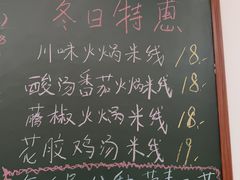 冬日特惠
川味火焖米线 18.
酸汤番茄火焖米线 18.
藤椒火焖米线 18.
花胶鸡汤米线 19.